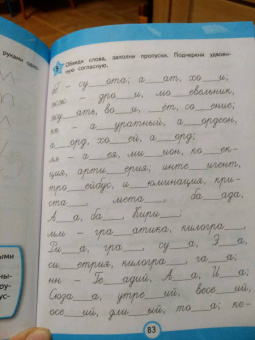 руками одно
Обведи слова, заполни пропуски. Подчеркни удвоен-
ную согласную.
бб – су__ота; а__ат, хо__и;
жж – дро__и, мо__евельник,
жу__ать, во__и, __ёт, со__ение;
кк – а__уратный, а__ордеон,
а__орд, хо__ей, а__орд;
лл – а__ея, ми__ион, ко__ек-
ция, арти__ерия, инте__игент,
тро__ейбус, и__юминация, кри-
ста__, мета__, ба__ада,
А__а, ба__, Кири__;
мм – гра__атика, килогра__,
Ри__а, гра__, су__а, Э__а,
си__етрия, килогра__, га__а;
нн – Ге__адий, А__а, И__а;
Сюза__а, утре__ий, весе__ий,
осе__ий, дли__ый, то__а; ко-
ными
ны-
ру-
ус-
83